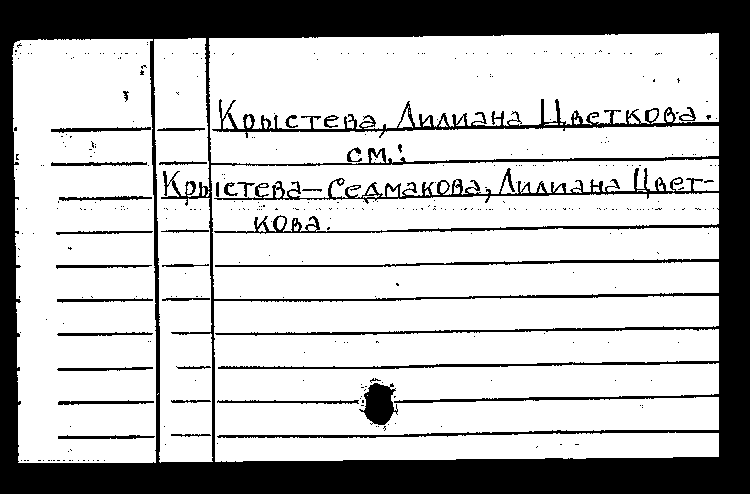 Крыстева, Лилиана Цветкова.
см.:
Крыстева–Седмакова, Лилиана Цвет-
кова.